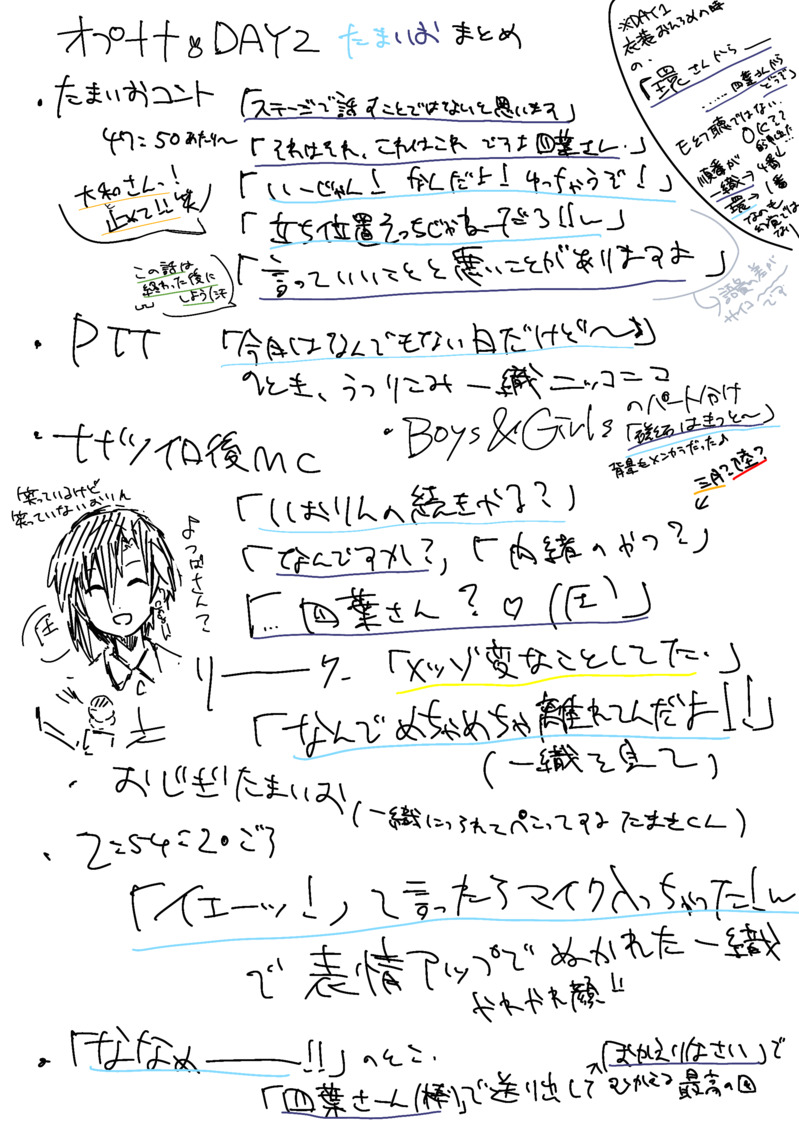 オプナナ DAY2 たまいおまとめ
※DAY1
衣装おひろめの時
の、
「環さんから━
……四葉さんから
どうぞ」
順番が
一織→4番↓
環→1番
・たまいおコント
「ステージで話すことではないと思います」
47:50あたり〜
「それはそれ、これはこれ ですよ四葉さん.」
大和さんっ!
止めて!!笑
「いーじゃん! なんだよ! ゆっちゃうぞ!」
「立ち位置えっちじゃねーぞろ!!」
この話は
終わった後に
しよう汗
「言っていいことと悪いことがありますよ」
語彙の差が
サイコーです
・PTT 「今日はなんでもない日だけど〜♪」
のとき、うつりこみ一織ニッコニコ
・Boys&Girlsのパート分け
「磁石はきっと〜」
背景もメンカラだった♪
・ナナツイロ後MC
三月?陸?
笑っているけど
笑っていないおりん
「いおりんの続きやる?」
「なんですか?」「内緒のやつ?」
よつばさん?
「…四葉さん?♡(圧)」
圧
リーーク.「メッゾ変なことしてた.」
「なんでめちゃめちゃ離れてんだよ!!」
(一織を見て)
・おじぎたまいお
(一織につられてぺこってするたまきくん)
・2:54:20ごろ
「イエーッ!」て言ったらマイク入っちゃった!
で表情アップでぬかれた一織
やれやれ顔!!
・「ななぁ━━!!」のそこ.
「四葉さーん(棒)」で送り出して
「おかえりなさい」で
むかえる 最高の図